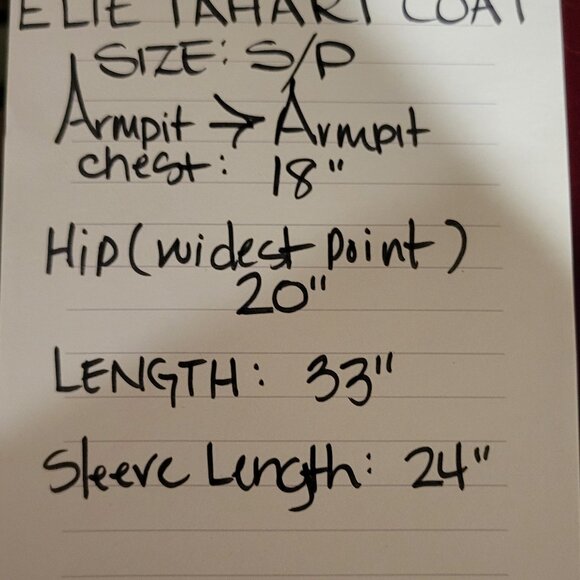 ELIE TAHARI COAT
SIZE: S/P
Armpit → Armpit
chest: 18"
Hip (widest point)
20"
LENGTH: 33"
Sleeve Length: 24"